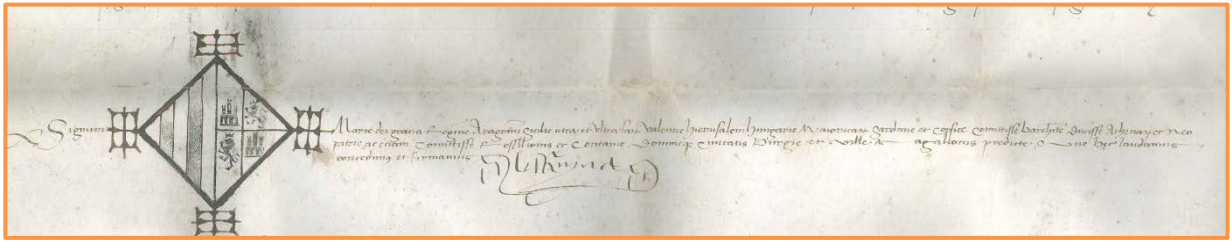 Signum Marie dei gracia Regine Aragonum Sicilie citra et ultra farum Valencie Hierusalem Hungarie Maioricarum Sardinie et Corsice Comitisse Barchinone Ducisse Athenarum et Neo
patrie ac eciam Comitisse Rossilionis et Ceritanie Domineque Civitatis Burgie et Ville de Magallonis predicte Que hec laudamus
concedimus et firmamus
La Reyna